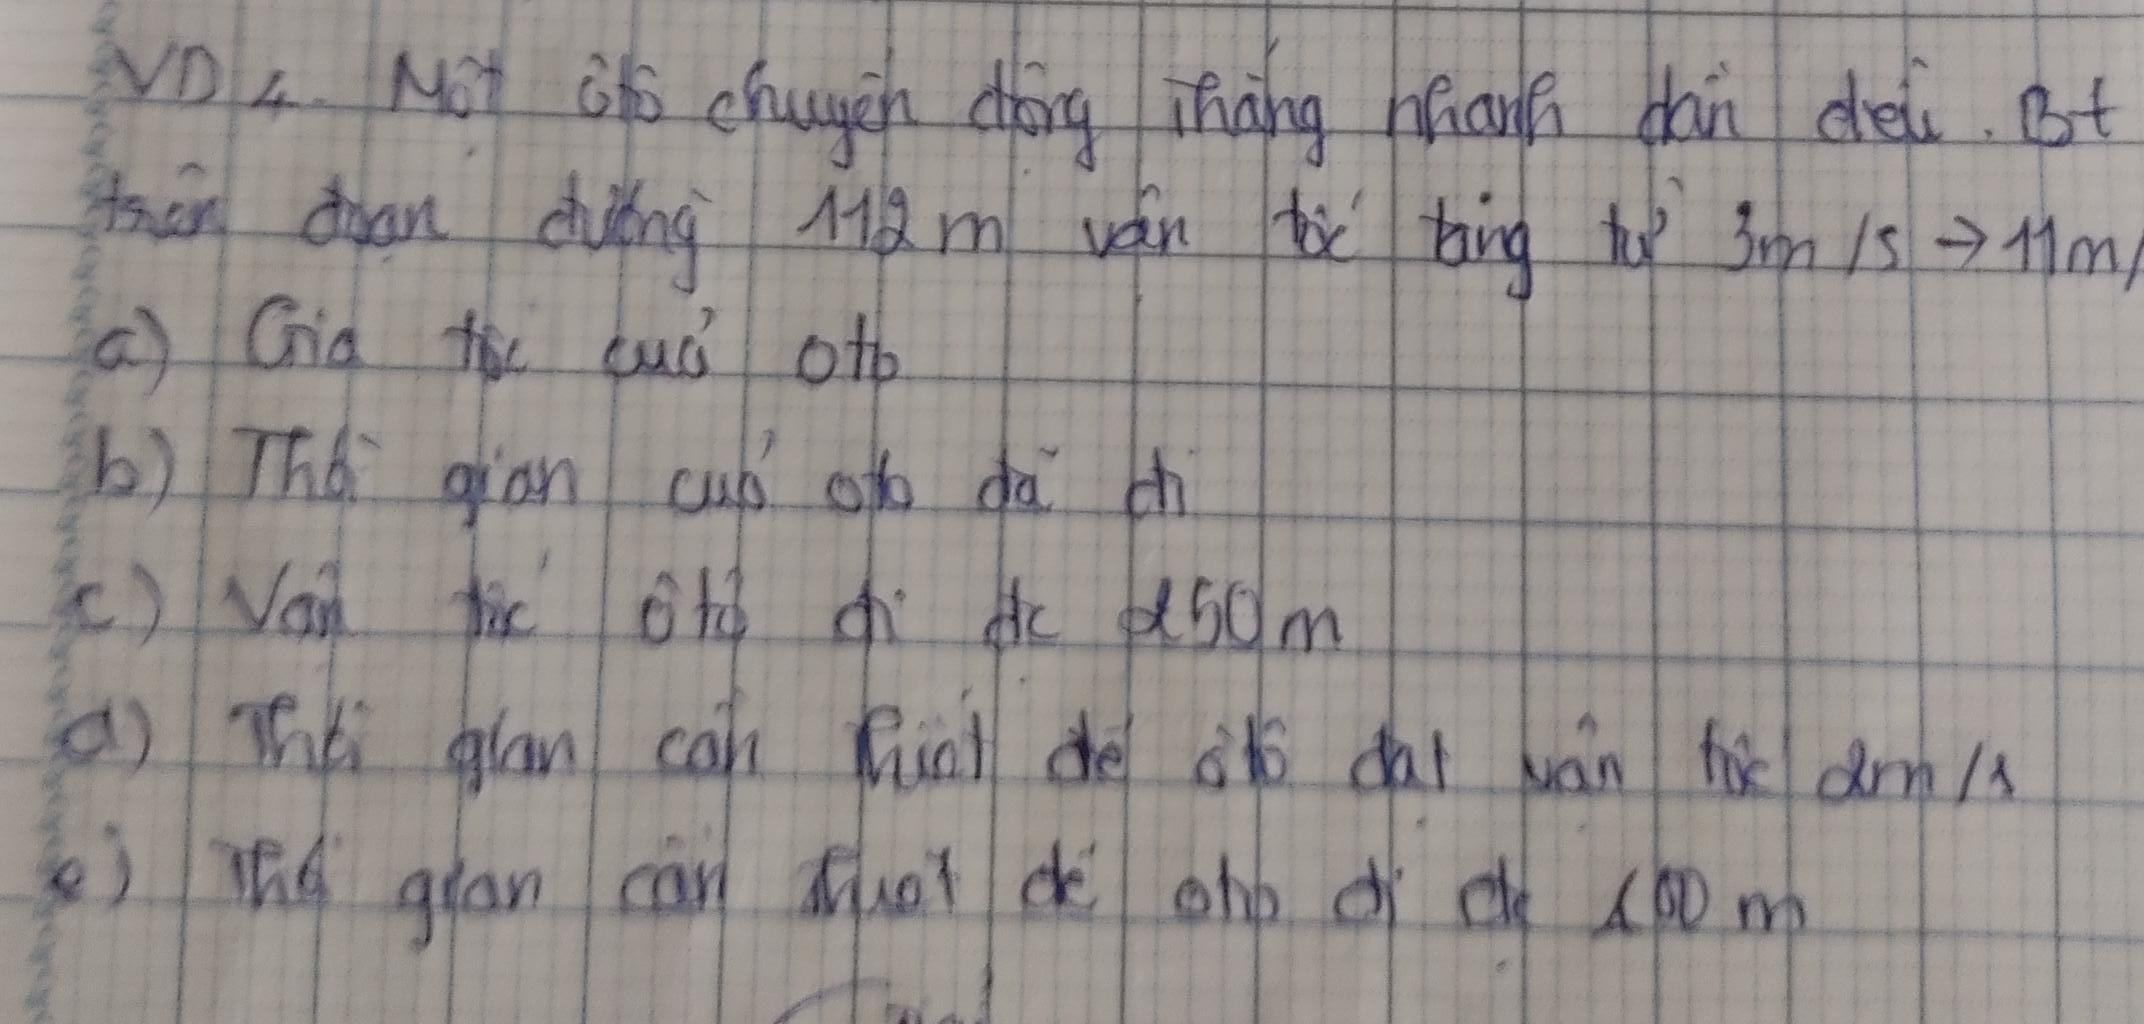 VD 4. Một ôtô chuyển động thẳng nhanh dần đều. Bt
trên đoạn đường 112 m vận tốc tăng từ 3m/s → 11m/
a) Gia tốc của oto
b) Thời gian của oto đã đi
c) Vận tốc ôtô đi đc 250 m
d) Thời gian cần thiết để ôtô đạt vận tốc 2m/s
e) Thời gian cần thiết để oto đi đc 100 m